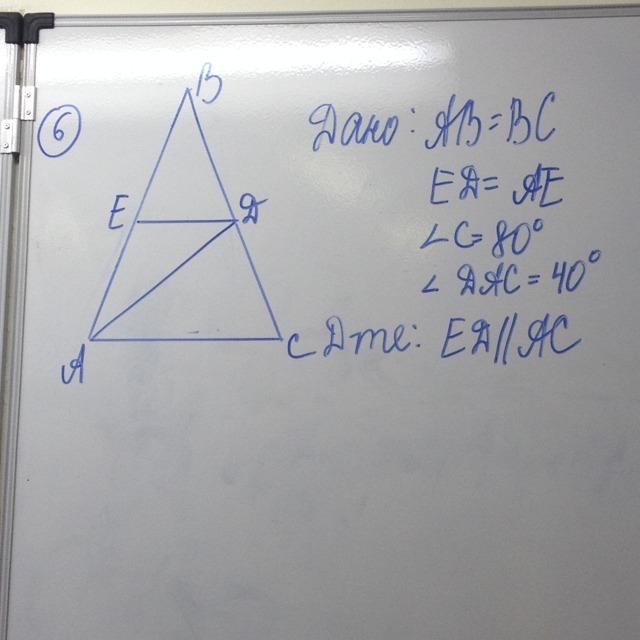 6
B
E
D
A
C
Дано: AB=BC
ED=AE
∠C=80°
∠DAC=40°
Д-ть: ED||AC